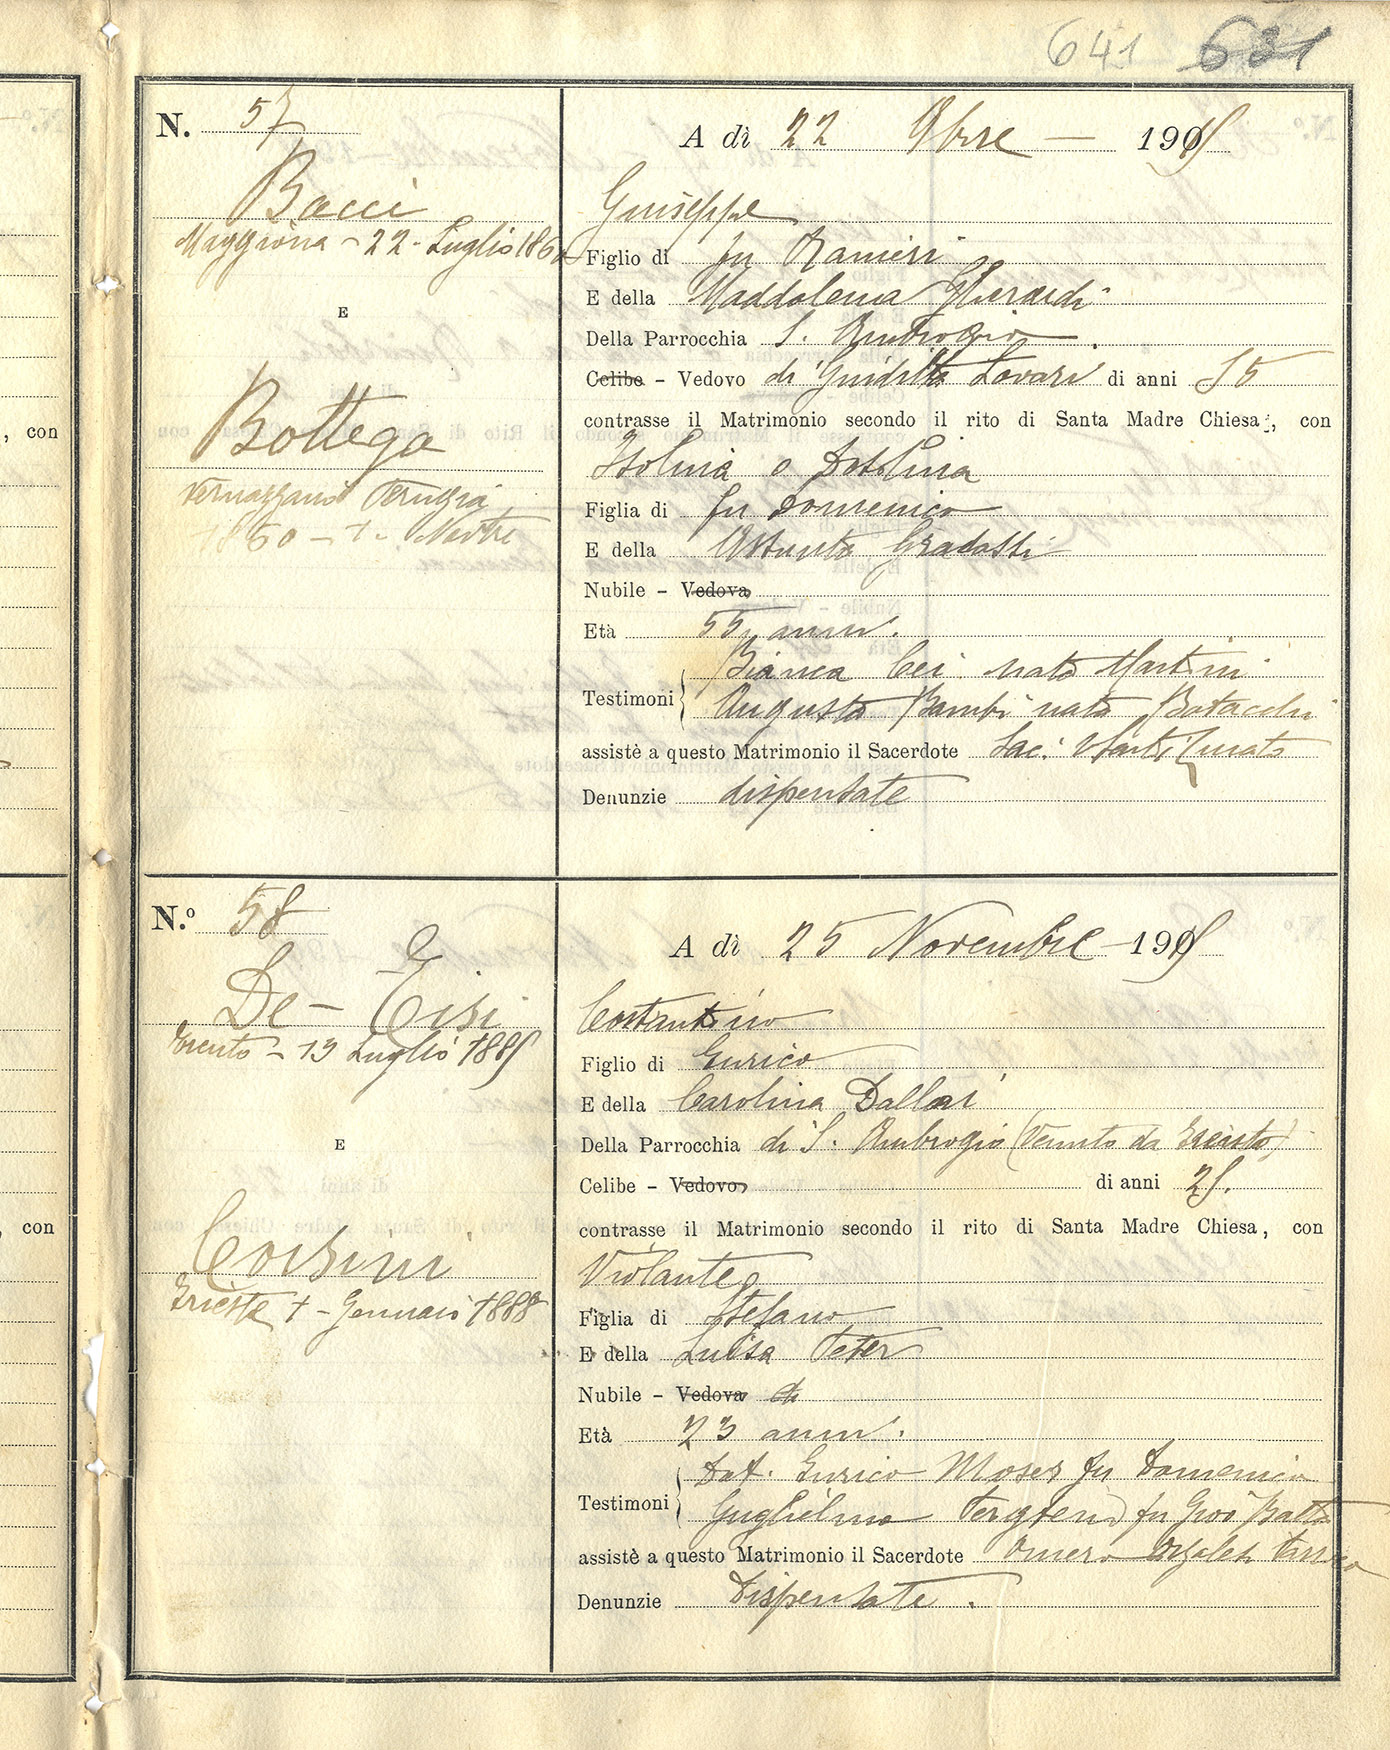 641 631
N. 57
Bacci
Maggiona - 22 - Luglio 186
E
Bottega
Vernazzano Perugia
1860 - 1. Marzo
A dì 22 9bre — 1915
Giuseppe
Figlio di fu Ranieri
E della Maddalena Gherardi
Della Parrocchia S. Ambrogio
Celibe - Vedovo di Giuditta Lovari di anni 55
contrasse il Matrimonio secondo il rito di Santa Madre Chiesa, con
Isolina o Adolina
Figlia di fu Domenico
E della Assunta Gradassi
Nubile - Vedova
Età 55 anni.
Testimoni Bianca Cei nata Martini
Augusta Bambi nata Batacchi
assistè a questo Matrimonio il Sacerdote Sac.
Denunzie dispensate
N.º 58
De - Eisi
Trento - 13 Luglio 1885
E
Corsini
Trieste 1 - Gennaio 1888
A dì 25 Novembre — 1915
Costantino
Figlio di Enrico
E della Carolina Dallari
Della Parrocchia di S. Ambrogio (Venuto da Trento)
Celibe - Vedovo di anni 25.
contrasse il Matrimonio secondo il rito di Santa Madre Chiesa, con
Violante
Figlia di Stefano
E della Luisa Peter
Nubile - Vedova
Età 23 anni.
Testimoni Dot. Enrico Moser fu Domenico
Guglielmo fu Gio Batta
assistè a questo Matrimonio il Sacerdote Omero
Denunzie Dispensate.
, con
, con